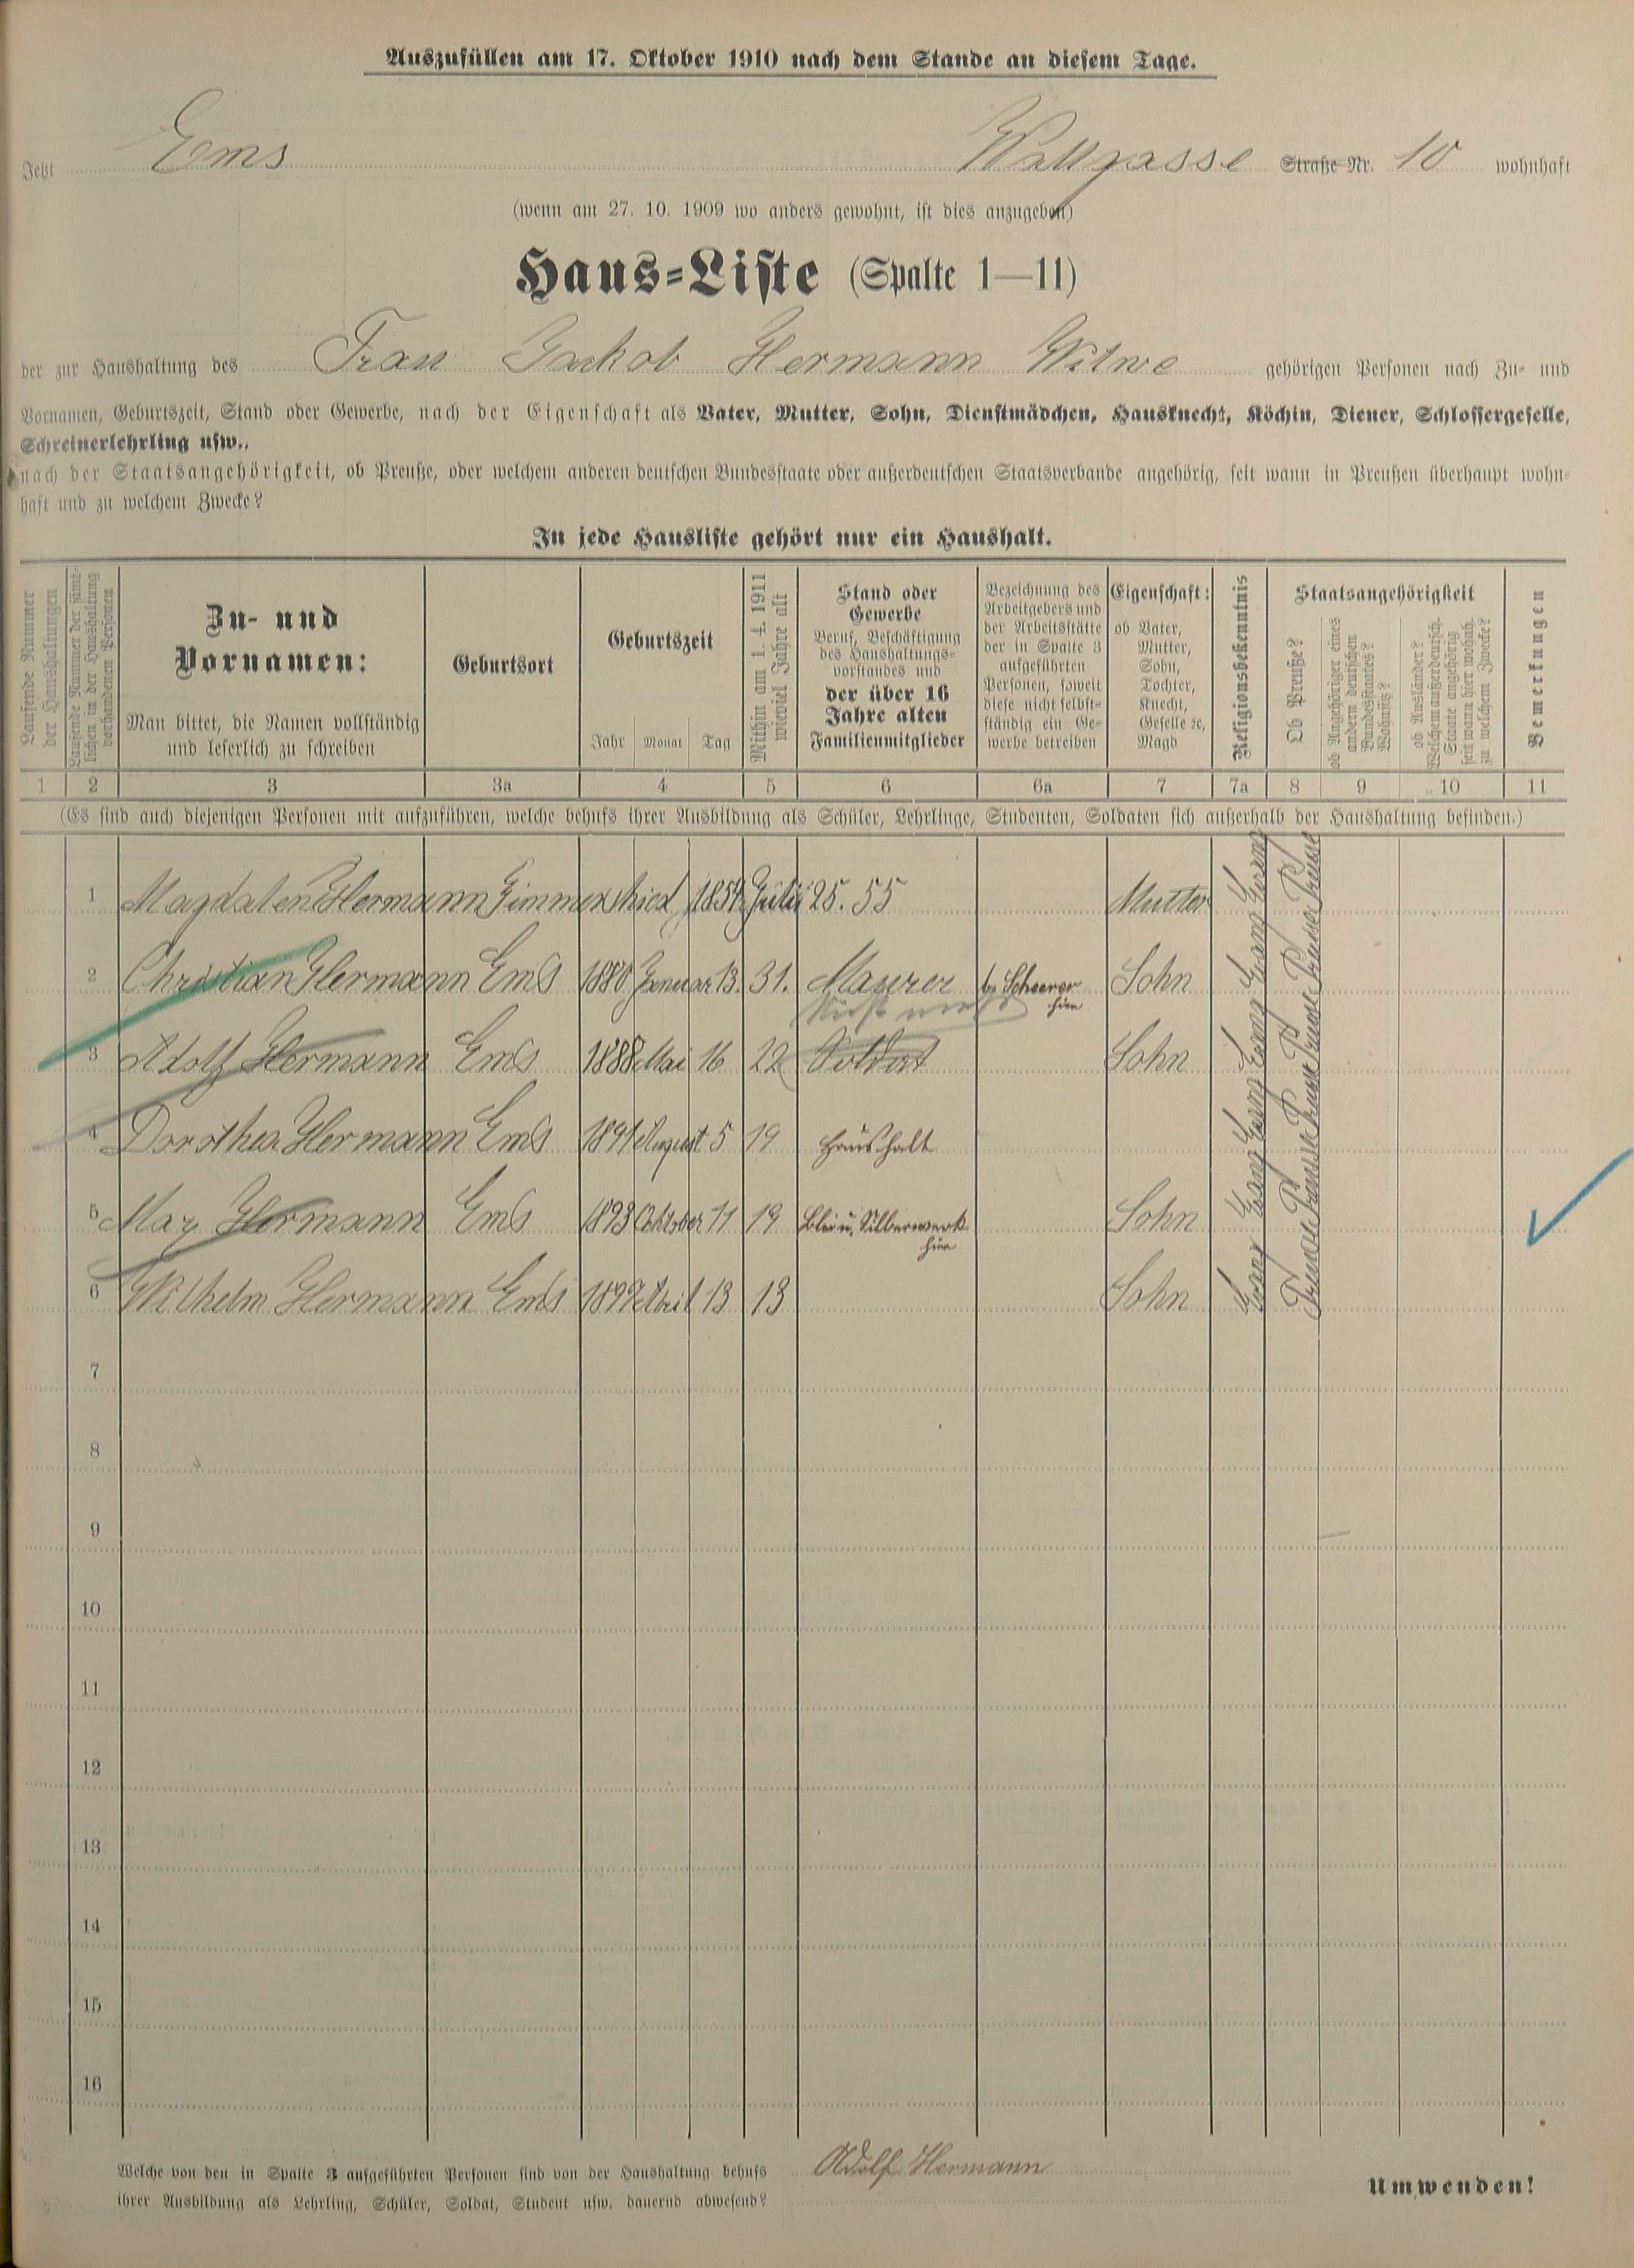 Auszufüllen am 17. Oktober 1910 nach dem Stande an diesem Tage.
Jetzt Ems Wallgasse Straße Nr. 10 wohnhaft
(wenn am 27. 10. 1909 wo anders gewohnt, ist dies anzugeben)
Haus-Liste (Spalte 1—11)
der zur Haushaltung des Frau Jackob Hermann Witwe gehörigen Personen nach Zu- und
Vornamen, Geburtszeit, Stand oder Gewerbe, nach der Eigenschaft als Vater, Mutter, Sohn, Dienstmädchen, Hausknecht, Köchin, Diener, Schlossergeselle,
Schreinerlehrling usw.,
nach der Staatsangehörigkeit, ob Preuße, oder welchem anderen deutschen Bundesstaate oder außerdeutschen Staatsverbande angehörig, seit wann in Preußen überhaupt wohn-
haft und zu welchem Zwecke?
In jede Hausliste gehört nur ein Haushalt.
Laufende Nummer der Haushaltungen
Laufende Nummer der sämt-
lichen in der Haushaltung
vorhandenen Personen
Zu- und
Vornamen:
Man bittet, die Namen vollständig
und leserlich zu schreiben
Geburtsort
Geburtszeit
Jahr Monat Tag
Mithin am 1. 4. 1911
wieviel Jahre alt
Stand oder
Gewerbe
Beruf, Beschäftigung
des Haushaltungs-
vorstandes und
der über 16
Jahre alten
Familienmitglieder
Bezeichnung des
Arbeitgebers und
der Arbeitsstätte
der in Spalte 3
aufgeführten
Personen, soweit
diese nicht selbst-
ständig ein Ge-
werbe betreiben
Eigenschaft:
ob Vater,
Mutter,
Sohn,
Tochter,
Knecht,
Geselle ꝛc,
Magd
Religionsbekenntnis
Staatsangehörigkeit
Ob Preuße?
ob Angehöriger eines
andern deutschen
Bundesstaates?
Wohnsitz?
ob Ausländer?
Welchem außerdeutsch.
Staate angehörig
seit wann hier wohnh.
zu welchem Zwecke?
Bemerkungen
1 2 3 3a 4 5 6 6a 7 7a 8 9 10 11
(Es sind auch diejenigen Personen mit aufzuführen, welche behufs ihrer Ausbildung als Schüler, Lehrlinge, Studenten, Soldaten sich außerhalb der Haushaltung befinden.)
1 Hermann Juli 25. 55 Mutter Evang Preuse
2 Christian Hermann Ems 1880 Januar 13. 31. Maurer b. Scheerer hier Sohn Evang Preuse
3 Adolf Hermann Ems 1888 Mai 16 22 Soldat Sohn Evang Preuse
4 Dorothea Hermann Ems 1891 August 5 19 Haushalt Evang Preuse
5 Max Hermann Ems 1893 Oktober 11 19 Blei u. Silberwerk hier Sohn Evang Preuse
6 Wilhelm Hermann Ems April 13 13 Sohn Evang Preuse
7
8
9
10
11
12
13
14
15
16
Welche von den in Spalte 3 aufgeführten Personen sind von der Haushaltung behufs
ihrer Ausbildung als Lehrling, Schüler, Soldat, Student usw. dauernd abwesend?
Adolf Hermann
Umwenden!